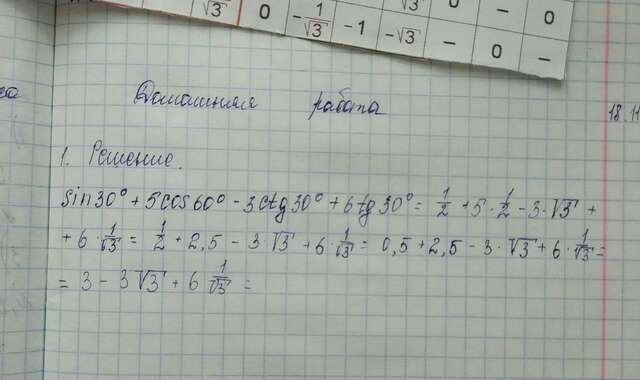 √3 0 -1/√3 -1 -√3 - 0 -
√3 0 - 0
Домашняя работа
18.11
1. Решение.
sin30° + 5cos60° - 3ctg30° + 6tg30° = 1/2 + 5·1/2 - 3·√3 +
+ 6·1/√3 = 1/2 + 2,5 - 3·√3 + 6·1/√3 = 0,5 + 2,5 - 3·√3 + 6·1/√3 =
= 3 - 3√3 + 6 1/√3 =